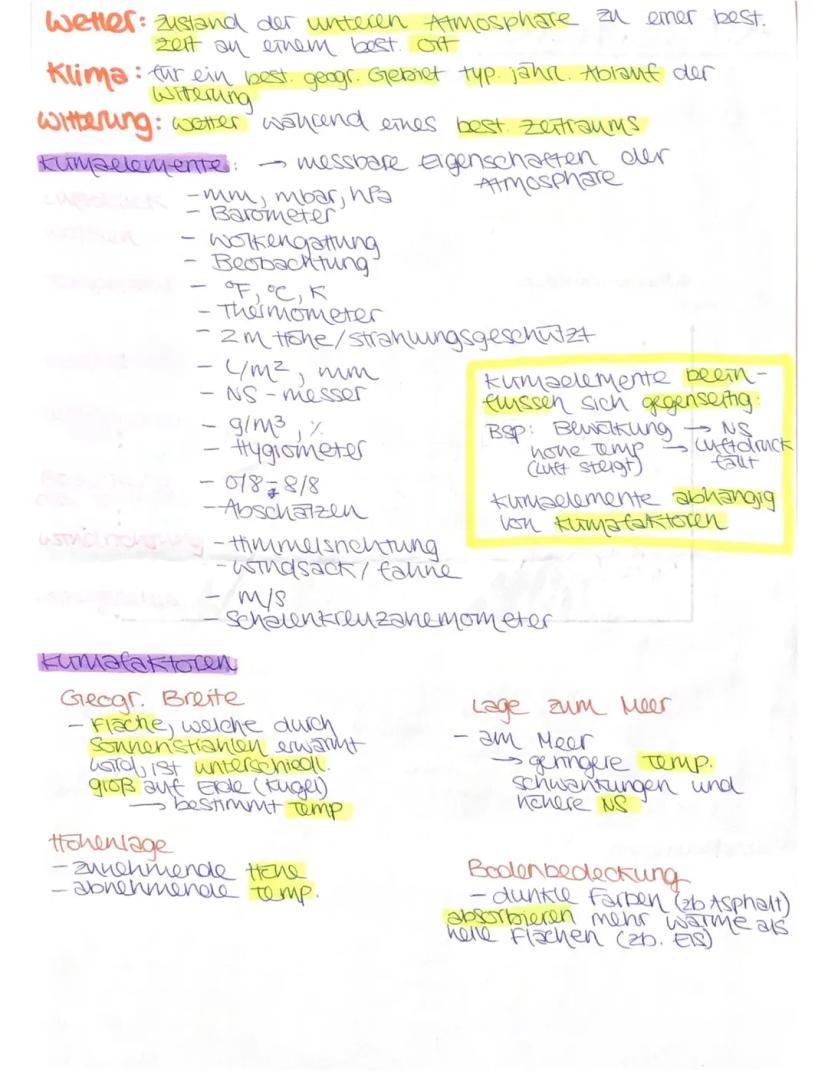 Wetter: Zustand der unteren Atmosphäre zu einer best.
Zeit an einem best. Ort
Klima: für ein best. geogr. Gebiet typ. jährl. Ablauf der
Witterung
Witterung: Wetter während eines best. Zeitraums
Klimaelemente: → messbare Eigenschaften der
Atmosphäre
Luftdruck - mm, mbar, hPa
- Barometer
Wolken - Wolkengattung
- Beobachtung
Temperatur - °F, °C, K
- Thermometer
- 2m Höhe/strahlungsgeschützt
- L/m², mm
- NS-messer
- g/m³, %
- Hygrometer
- 0/8 - 8/8
- Abschätzen
Windrichtung - Himmelsrichtung
- Windsack/fahne
- m/s
- Schalenkreuzanemometer
Klimaelemente beein-
flussen sich gegenseitig:
Bsp: Bewölkung → NS
hohe Temp → Luftdruck
(Luft steigt) fällt
Klimaelemente abhängig
von Klimafaktoren
Klimafaktoren
Geogr. Breite
- Fläche, welche durch
Sonnenstrahlen erwärmt
wird, ist unterschiedl.
groß auf Erde (Kugel)
→ bestimmt Temp
Lage zum Meer
- am Meer
→ geringere Temp.
schwankungen und
höhere NS
Höhenlage
- zunehmende Höhe
- abnehmende Temp.
Bodenbedeckung
- dunkle Farben (zb Asphalt)
absorbieren mehr Wärme als
helle Flächen (zb. Eis)